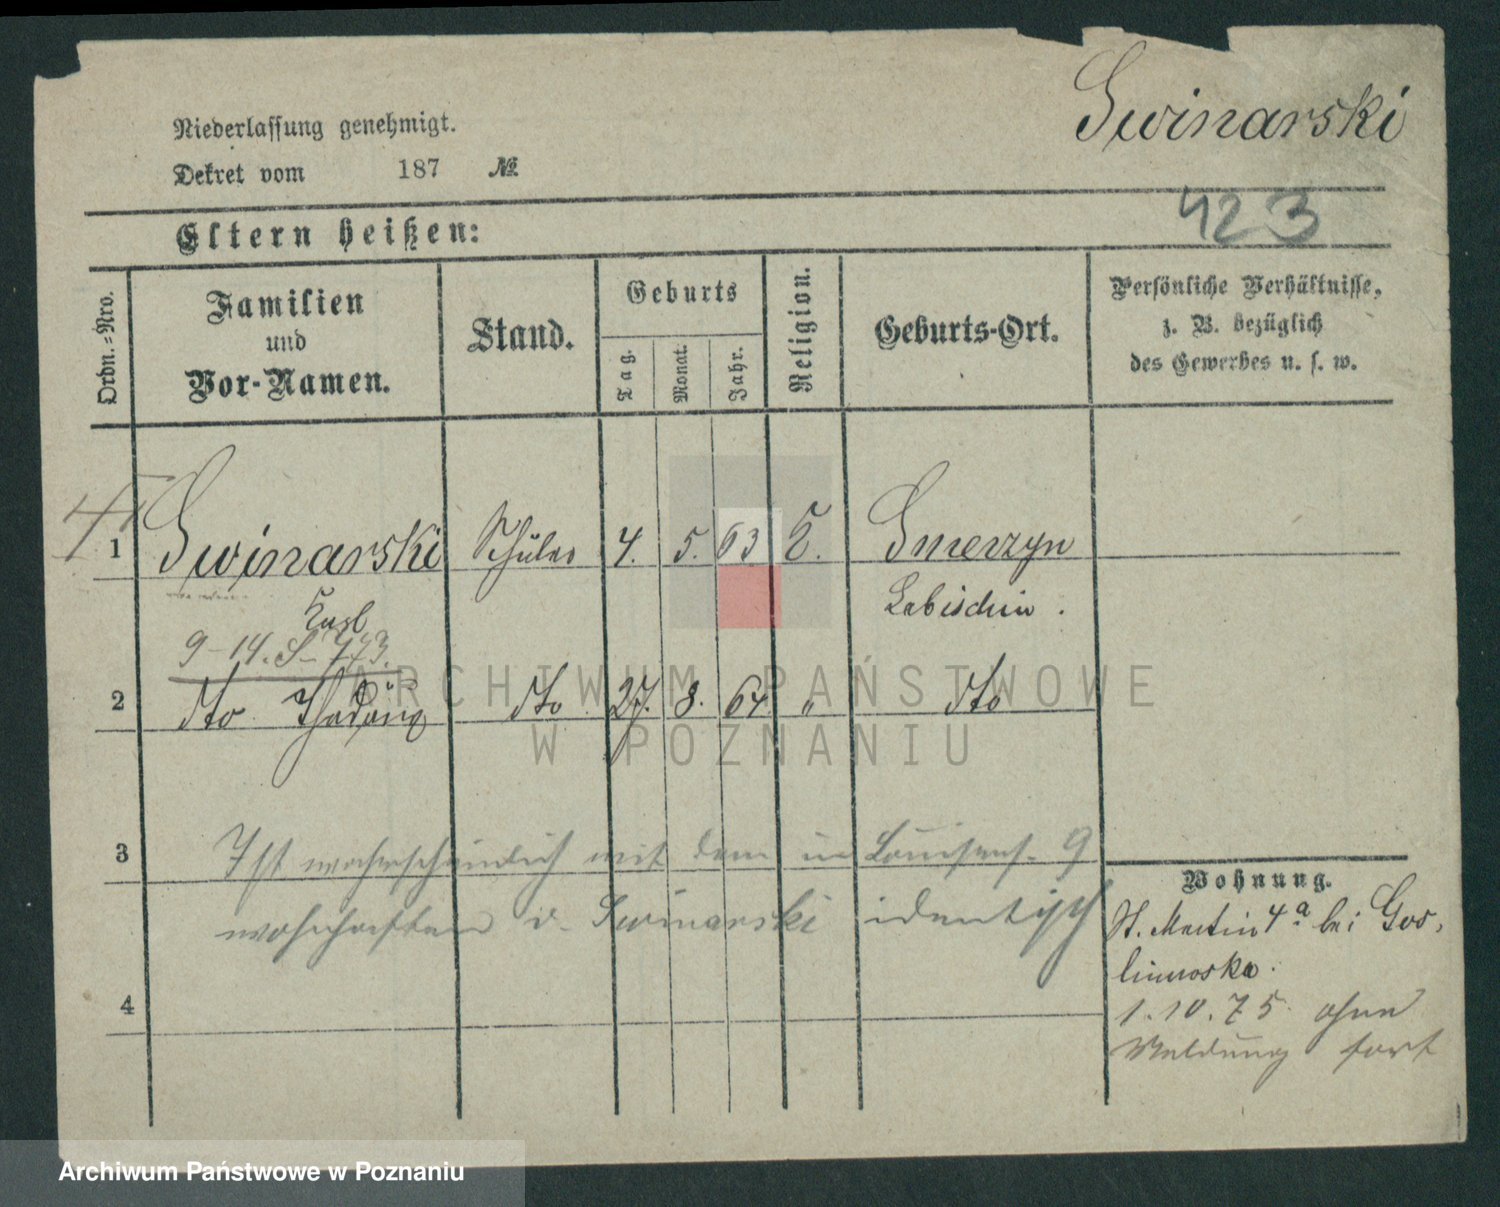 Swinarski
Niederlassung genehmigt.
Dekret vom 187 №
423
Eltern heißen:
Ordn.-Nro.
Familien
und
Vor-Namen.
Stand.
Geburts
Tag.
Monat.
Jahr.
Religion.
Geburts-Ort.
Persönliche Verhältnisse,
z. B. bezüglich
des Gewerbes u. s. w.
1 Swinarski Schüler 4. 5. 63 Smerzyn
Labischin.
Karl
9-14. S-773.
2 dto 27. 8. 64 " dto
3 Ist wahrscheinlich mit dem in Louisens. 9
wohnhaften v. Swinarski identisch
4
Wohnung.
St. Martin 4a bei Gos-
linowska.
1.10.75 ohne
Meldung fort
ARCHIWUM PAŃSTWOWE
W POZNANIU
Archiwum Państwowe w Poznaniu